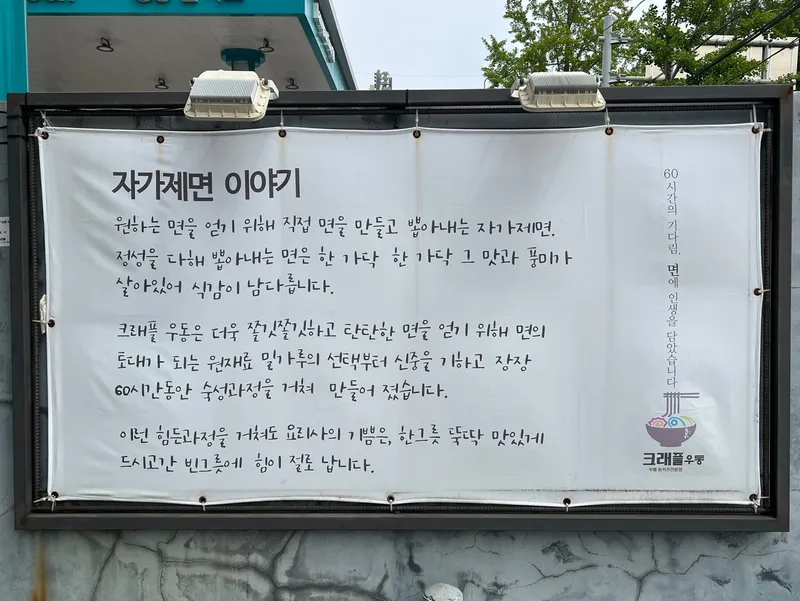 자가제면 이야기
원하는 면을 얻기 위해 직접 면을 만들고 뽑아내는 자가제면.
정성을 다해 뽑아내는 면은 한 가닥 한 가닥 그 맛과 풍미가
살아있어 식감이 남다릅니다.
크래플 우동은 더욱 쫄깃쫄깃하고 탄탄한 면을 얻기 위해 면의
토대가 되는 원재료 밀가루의 선택부터 신중을 기하고 장장
60시간동안 숙성과정을 거쳐 만들어 졌습니다.
이런 힘든과정을 거쳐도 요리사의 기쁨은, 한그릇 뚝딱 맛있게
드시고간 빈그릇에 힘이 절로 납니다.
60시간의 기다림, 면에 인생을 담았습니다
크래플우동
우동·돈카츠전문점